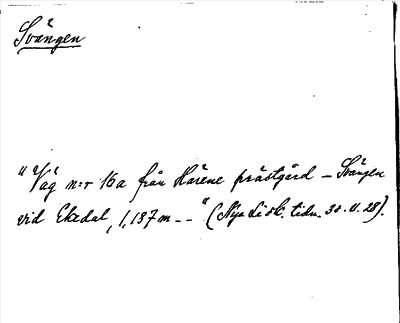 Svängen
"Väg n:r 16a från Härene prästgård – Svängen
vid Ekedal, 1,137 m – –" (Nya Lidk. tidn. 30.V.28).